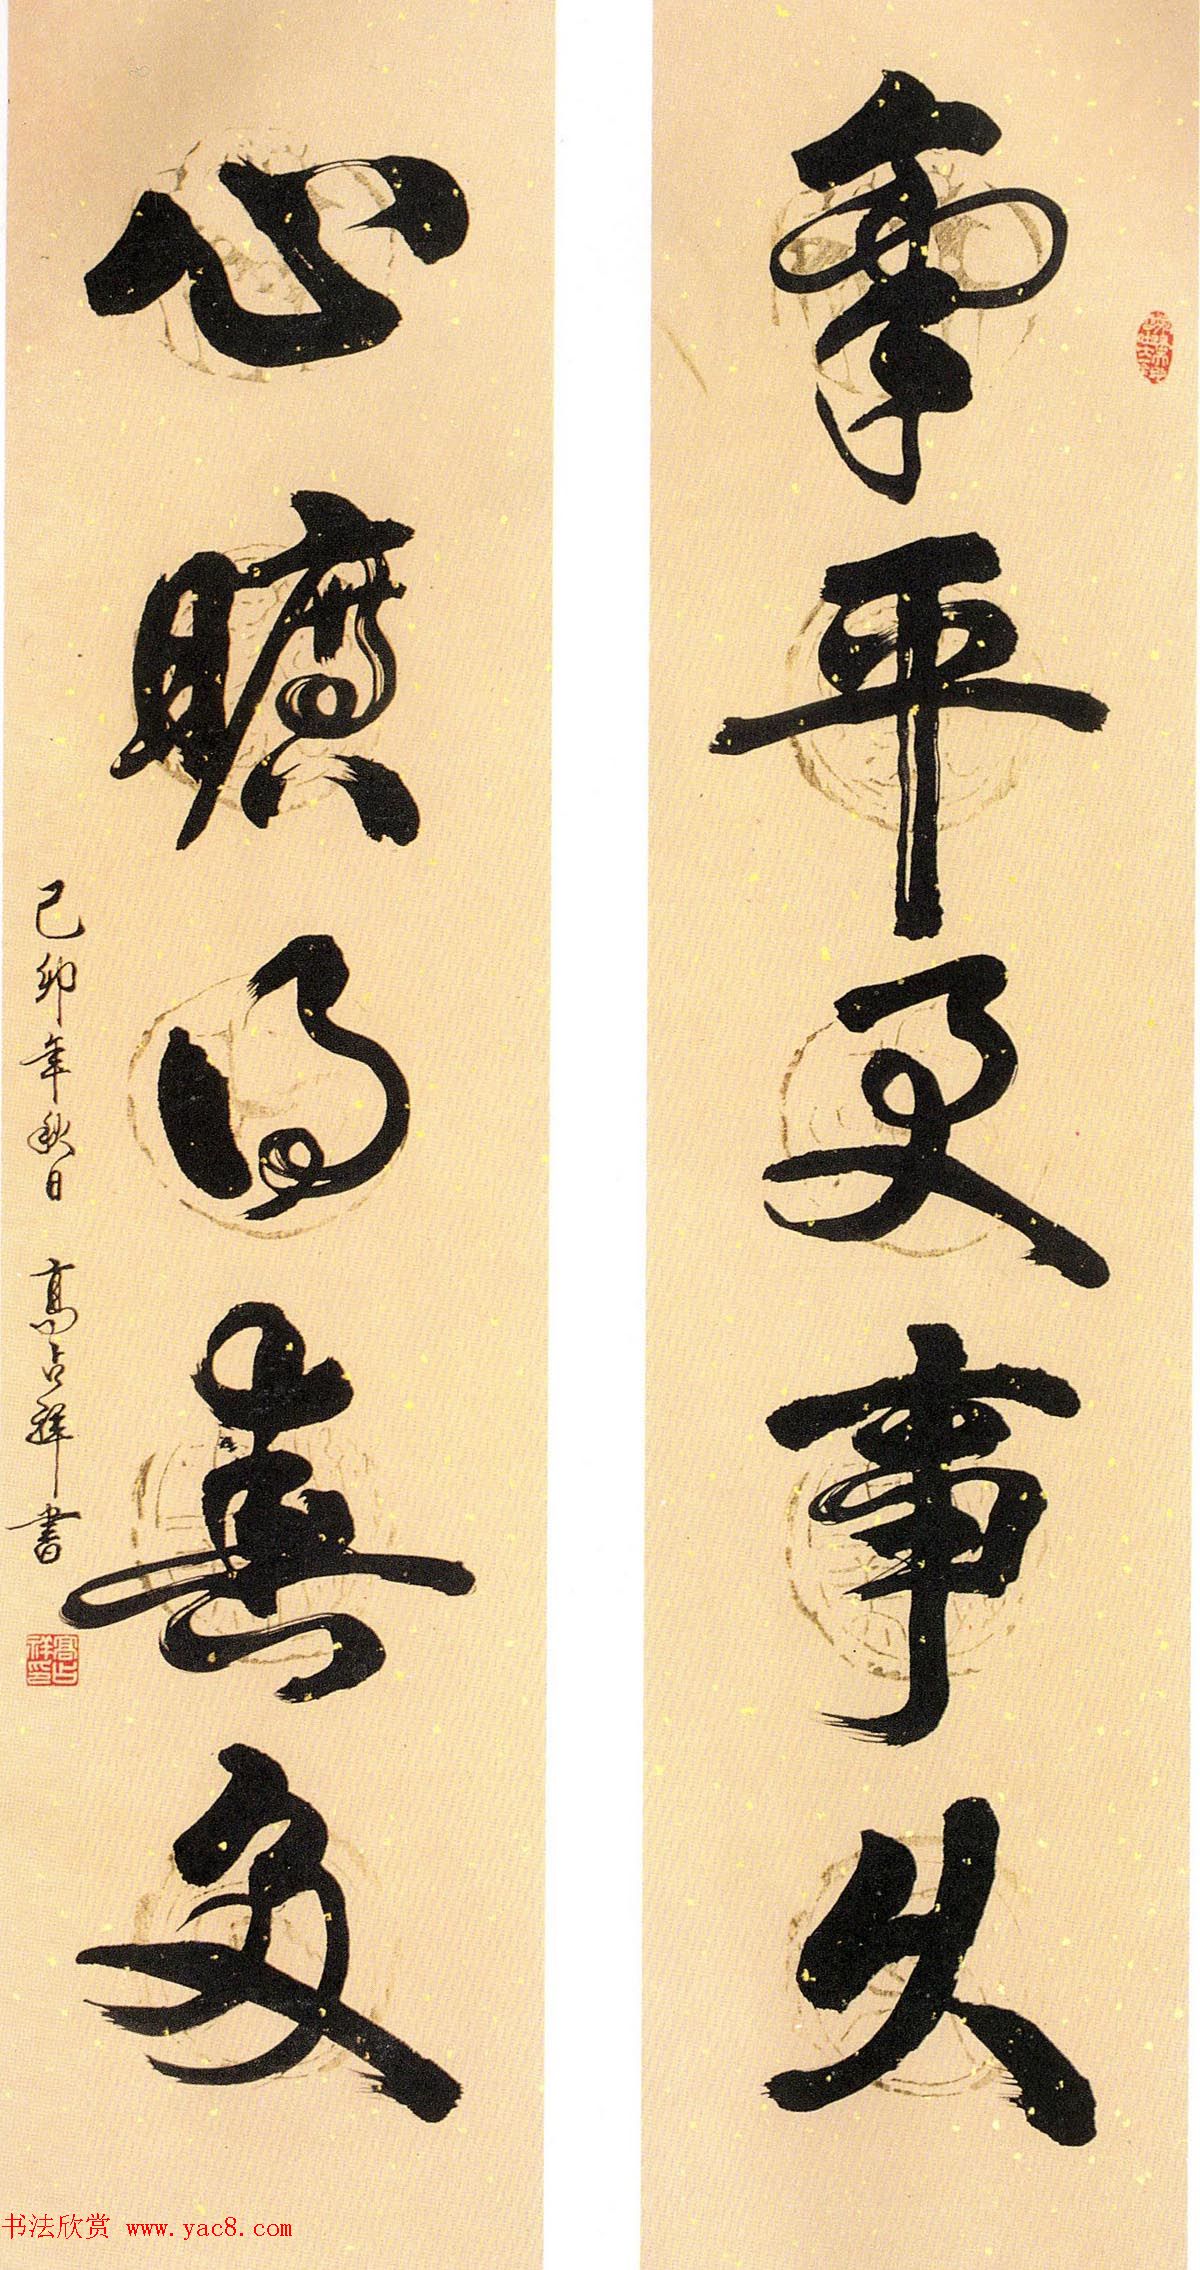 平更事久
心曠得多
己卯年秋日 高占祥書
高占祥印
书法欣赏 www.yac8.com